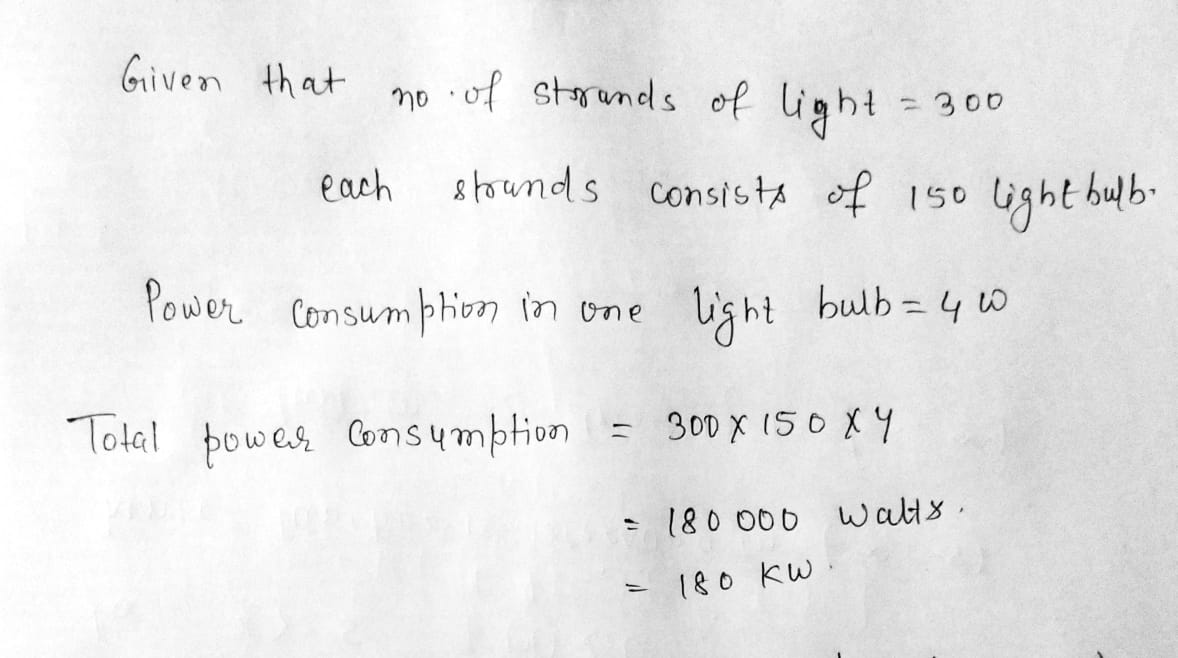 Given that no. of strands of light = 300
each strands consists of 150 lightbulb.
Power Consumption in one light bulb = 4 W
Total power Consumption = 300 X 150 X 4
= 180 000 Watts.
= 180 KW.